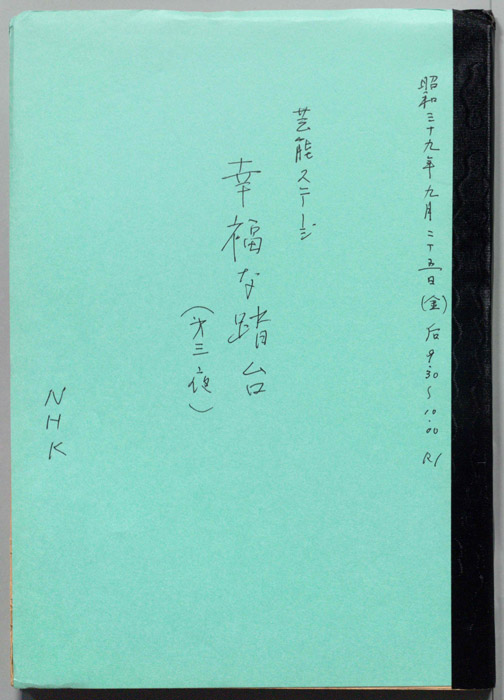 昭和三十九年九月二十五日(金)后9.30〜10.00 R1
芸能ステージ
幸福な踏台
(才三夜)
NHK